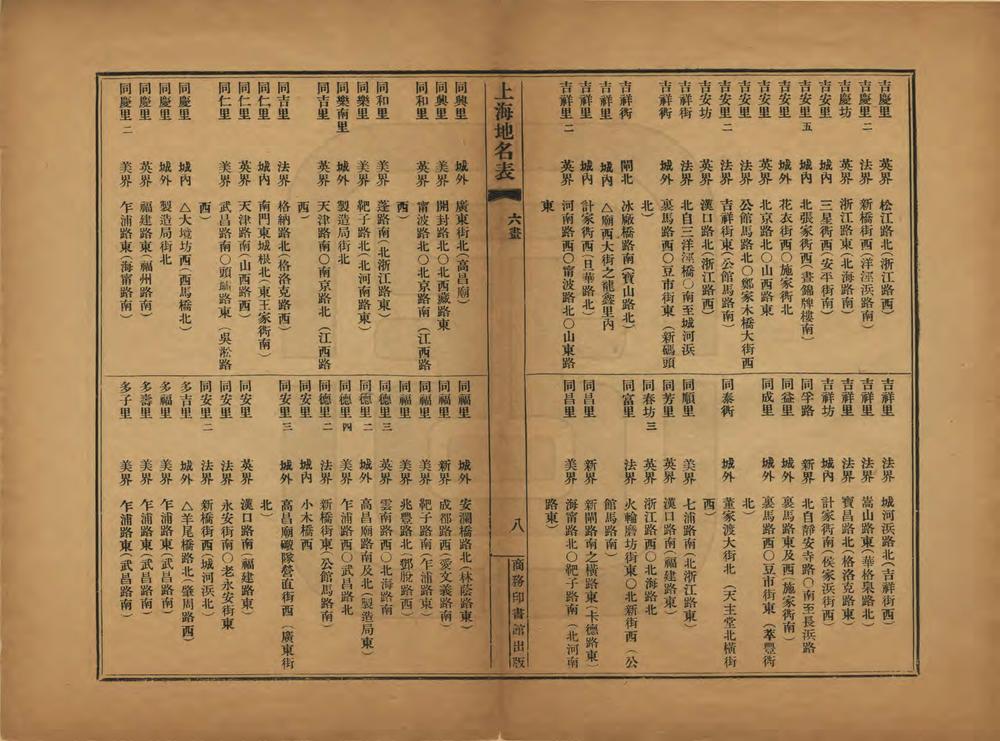 吉慶里 英界 松江路北(浙江路西)
吉慶里二 法界 新橋街西(洋涇浜路南)
吉慶坊 英界 浙江路東(北海路南)
吉安里 城內 三星衖西(安平街南)
吉安里五 城內 北張家衖西(晝錦牌樓南)
吉安里 城外 花衣街西○施家衖北
吉安里 英界 北京路北○山西路東
吉安里 法界 公館馬路北○鄭家木橋大街西
吉安里二 法界 吉祥街東(公館馬路南)
吉安坊 英界 漢口路北(浙江路西)
吉祥街 法界 北自三洋涇橋○南至城河浜
吉祥衖 城外 裏馬路西○豆市街東(新碼頭
北)
吉祥衖 閘北 冰廠橋路南(寶山路北)
吉祥里 城內 △廟西大街之龍鑫里內
吉祥里 城內 計家衖西(旦華路北)
吉祥里二 英界 河南路西○甯波路北○山東路
東
吉祥里 法界 城河浜路北(吉祥街西)
吉祥里 法界 嵩山路東(華格臬路北)
吉祥里 法界 寶昌路北(格洛克路東)
吉祥坊 城內 計家衖南(侯家浜街西)
同孚路 新界 北自靜安寺路○南至長浜路
同益里 城外 裏馬路東及西(施家衖南)
同成里 城外 裏馬路西○豆市街東(萃豐衖
北)
同泰衖 城外 董家渡大街北(天主堂北橫街
西)
同順里 美界 七浦路南(北浙江路東)
同芳里 英界 漢口路南(福建路東)
同春坊三 英界 浙江路西○北海路北
同富里 法界 火輪磨坊街東○北新街西(公
館馬路南)
同昌里 新界 新閘路南之橫路東(卡德路東)
同昌里 美界 海甯路北○靶子路南(北河南
路東)
上海地名表
六畫
八
商務印書館出版
同興里 城外 廣東街北(高昌廟)
同興里 美界 開封路北○北西藏路東
同和里 英界 甯波路北○北京路南(江西路
西)
同和里 美界 蓬路南(北浙江路東)
同樂里 美界 靶子路北(北河南路東)
同樂南里 城外 製造局街北
同吉里 英界 天津路南○南京路北(江西路
西)
同吉里 法界 格納路北(格洛克路西)
同仁里 城內 南門東城根北(東王家衖南)
同仁里 英界 天津路南(山西路西)
同仁里 美界 武昌路南○頭壩路東(吳淞路
西)
同慶里 城內 △大境坊西(西馬橋北)
同慶里 城外 製造局街北
同慶里 英界 福建路東(福州路南)
同慶里二 美界 乍浦路東(海甯路南)
同福里 城外 安瀾橋路北(林蔭路東)
同福里 新界 成都路西○愛文義路南
同福里 美界 靶子路南(乍浦路東)
同福里 美界 兆豐路北(鄧脫路西)
同德里三 英界 雲南路西○北海路南
同德里二 城外 高昌廟路南及北(製造局東)
同德里四 美界 乍浦路西○武昌路北
同德里二 法界 新橋街東(公館馬路南)
同安里 城內 小木橋西
同安里三 城外 高昌廟礮隊營直街西(廣東街
北)
同安里 英界 漢口路南(福建路東)
同安里 法界 永安街南○老永安街東
同安里二 法界 新橋街西(城河浜北)
多吉里 城外 △羊尾橋路北(肇周路西)
多福里 美界 乍浦路東(武昌路南)
多壽里 美界 乍浦路東(武昌路南)
多子里 美界 乍浦路東(武昌路南)